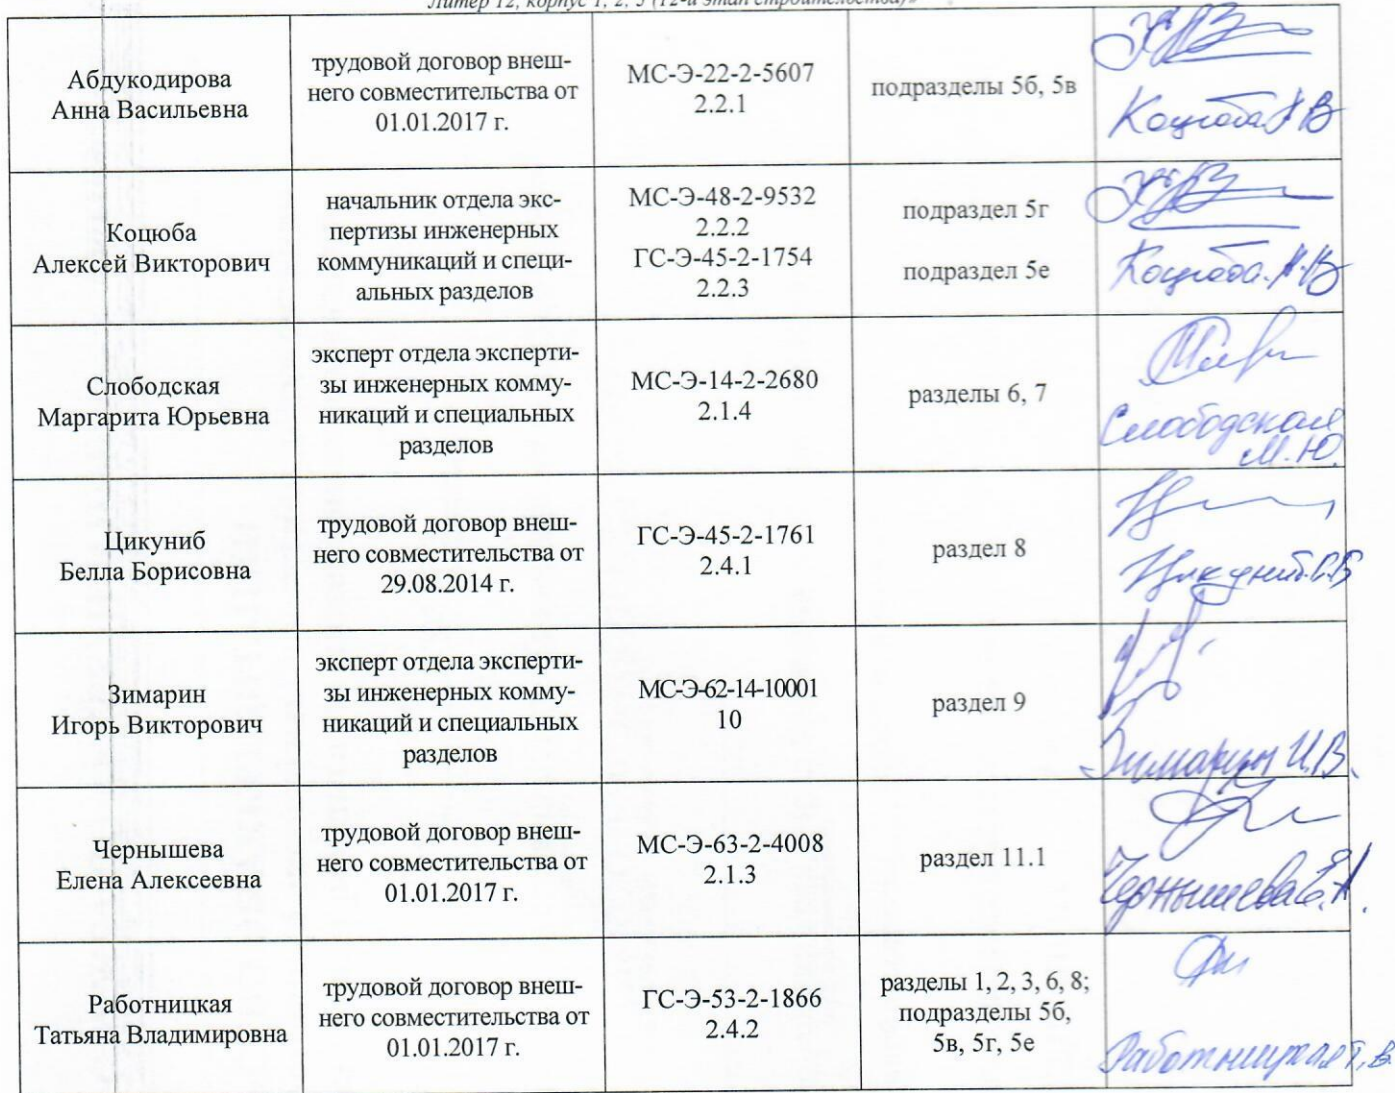 Литер 12, корпус 1, 2, 3 (12-й этап строительства)»
Абдукодирова
Анна Васильевна
трудовой договор внеш-
него совместительства от
01.01.2017 г.
МС-Э-22-2-5607
2.2.1
подразделы 5б, 5в
Коцюба А В
Коцюба
Алексей Викторович
начальник отдела экс-
пертизы инженерных
коммуникаций и специ-
альных разделов
МС-Э-48-2-9532
2.2.2
ГС-Э-45-2-1754
2.2.3
подраздел 5г
подраздел 5е
Коцюба А.В
Слободская
Маргарита Юрьевна
эксперт отдела эксперти-
зы инженерных комму-
никаций и специальных
разделов
МС-Э-14-2-2680
2.1.4
разделы 6, 7
Слободская
М.Ю.
Цикуниб
Белла Борисовна
трудовой договор внеш-
него совместительства от
29.08.2014 г.
ГС-Э-45-2-1761
2.4.1
раздел 8
Цикуниб Б.Б
Зимарин
Игорь Викторович
эксперт отдела эксперти-
зы инженерных комму-
никаций и специальных
разделов
МС-Э-62-14-10001
10
раздел 9
Зимарин И.В.
Чернышева
Елена Алексеевна
трудовой договор внеш-
него совместительства от
01.01.2017 г.
МС-Э-63-2-4008
2.1.3
раздел 11.1
Чернышева Е.А.
Работницкая
Татьяна Владимировна
трудовой договор внеш-
него совместительства от
01.01.2017 г.
ГС-Э-53-2-1866
2.4.2
разделы 1, 2, 3, 6, 8;
подразделы 5б,
5в, 5г, 5е
Работницкая Т.В.